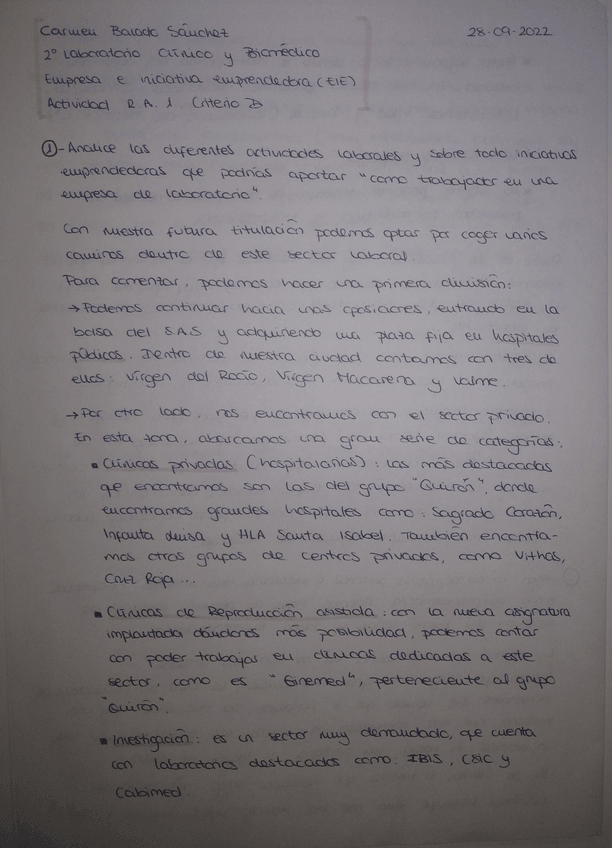 Carmen Balado Sánchez 28-09-2022
2º Laboratorio Clínico y Biomédico
Empresa e iniciativa emprendedora (EIE)
Actividad R.A. 1 Criterio B
① - Analice las diferentes actividades laborales y sobre todo iniciativas
emprendedoras que podrías aportar "como trabajador en una
empresa de laboratorio".
Con nuestra futura titulación podemos optar por coger varios
caminos dentro de este sector laboral.
Para comentar, podemos hacer una primera división:
→ Podemos continuar hacia unas oposiciones, entrando en la
bolsa del S.A.S y adquiriendo una plaza fija en hospitales
públicos. Dentro de nuestra ciudad contamos con tres de
ellos: Virgen del Rocío, Virgen Macarena y Valme.
→ Por otro lado, nos encontramos con el sector privado.
En esta zona, abarcamos una gran serie de categorías:
▪ Clínicas privadas (hospitalarias): las más destacadas
que encontramos son las del grupo "Quirón", donde
encontramos grandes hospitales como: Sagrado Corazón,
Infanta Luisa y HLA Santa Isabel. También encontra-
mos otros grupos de centros privados, como Vithas,
Cruz Roja ...
▪ Clínicas de Reproducción asistida: con la nueva asignatura
implantada dándonos más posibilidad, podemos contar
con poder trabajar en clínicas dedicadas a este
sector, como es "Ginemed", perteneciente al grupo
"Quirón".
▪ Investigación: es un sector muy demandado, que cuenta
con laboratorios destacados como: IBIS, CSIC y
Cabimed.